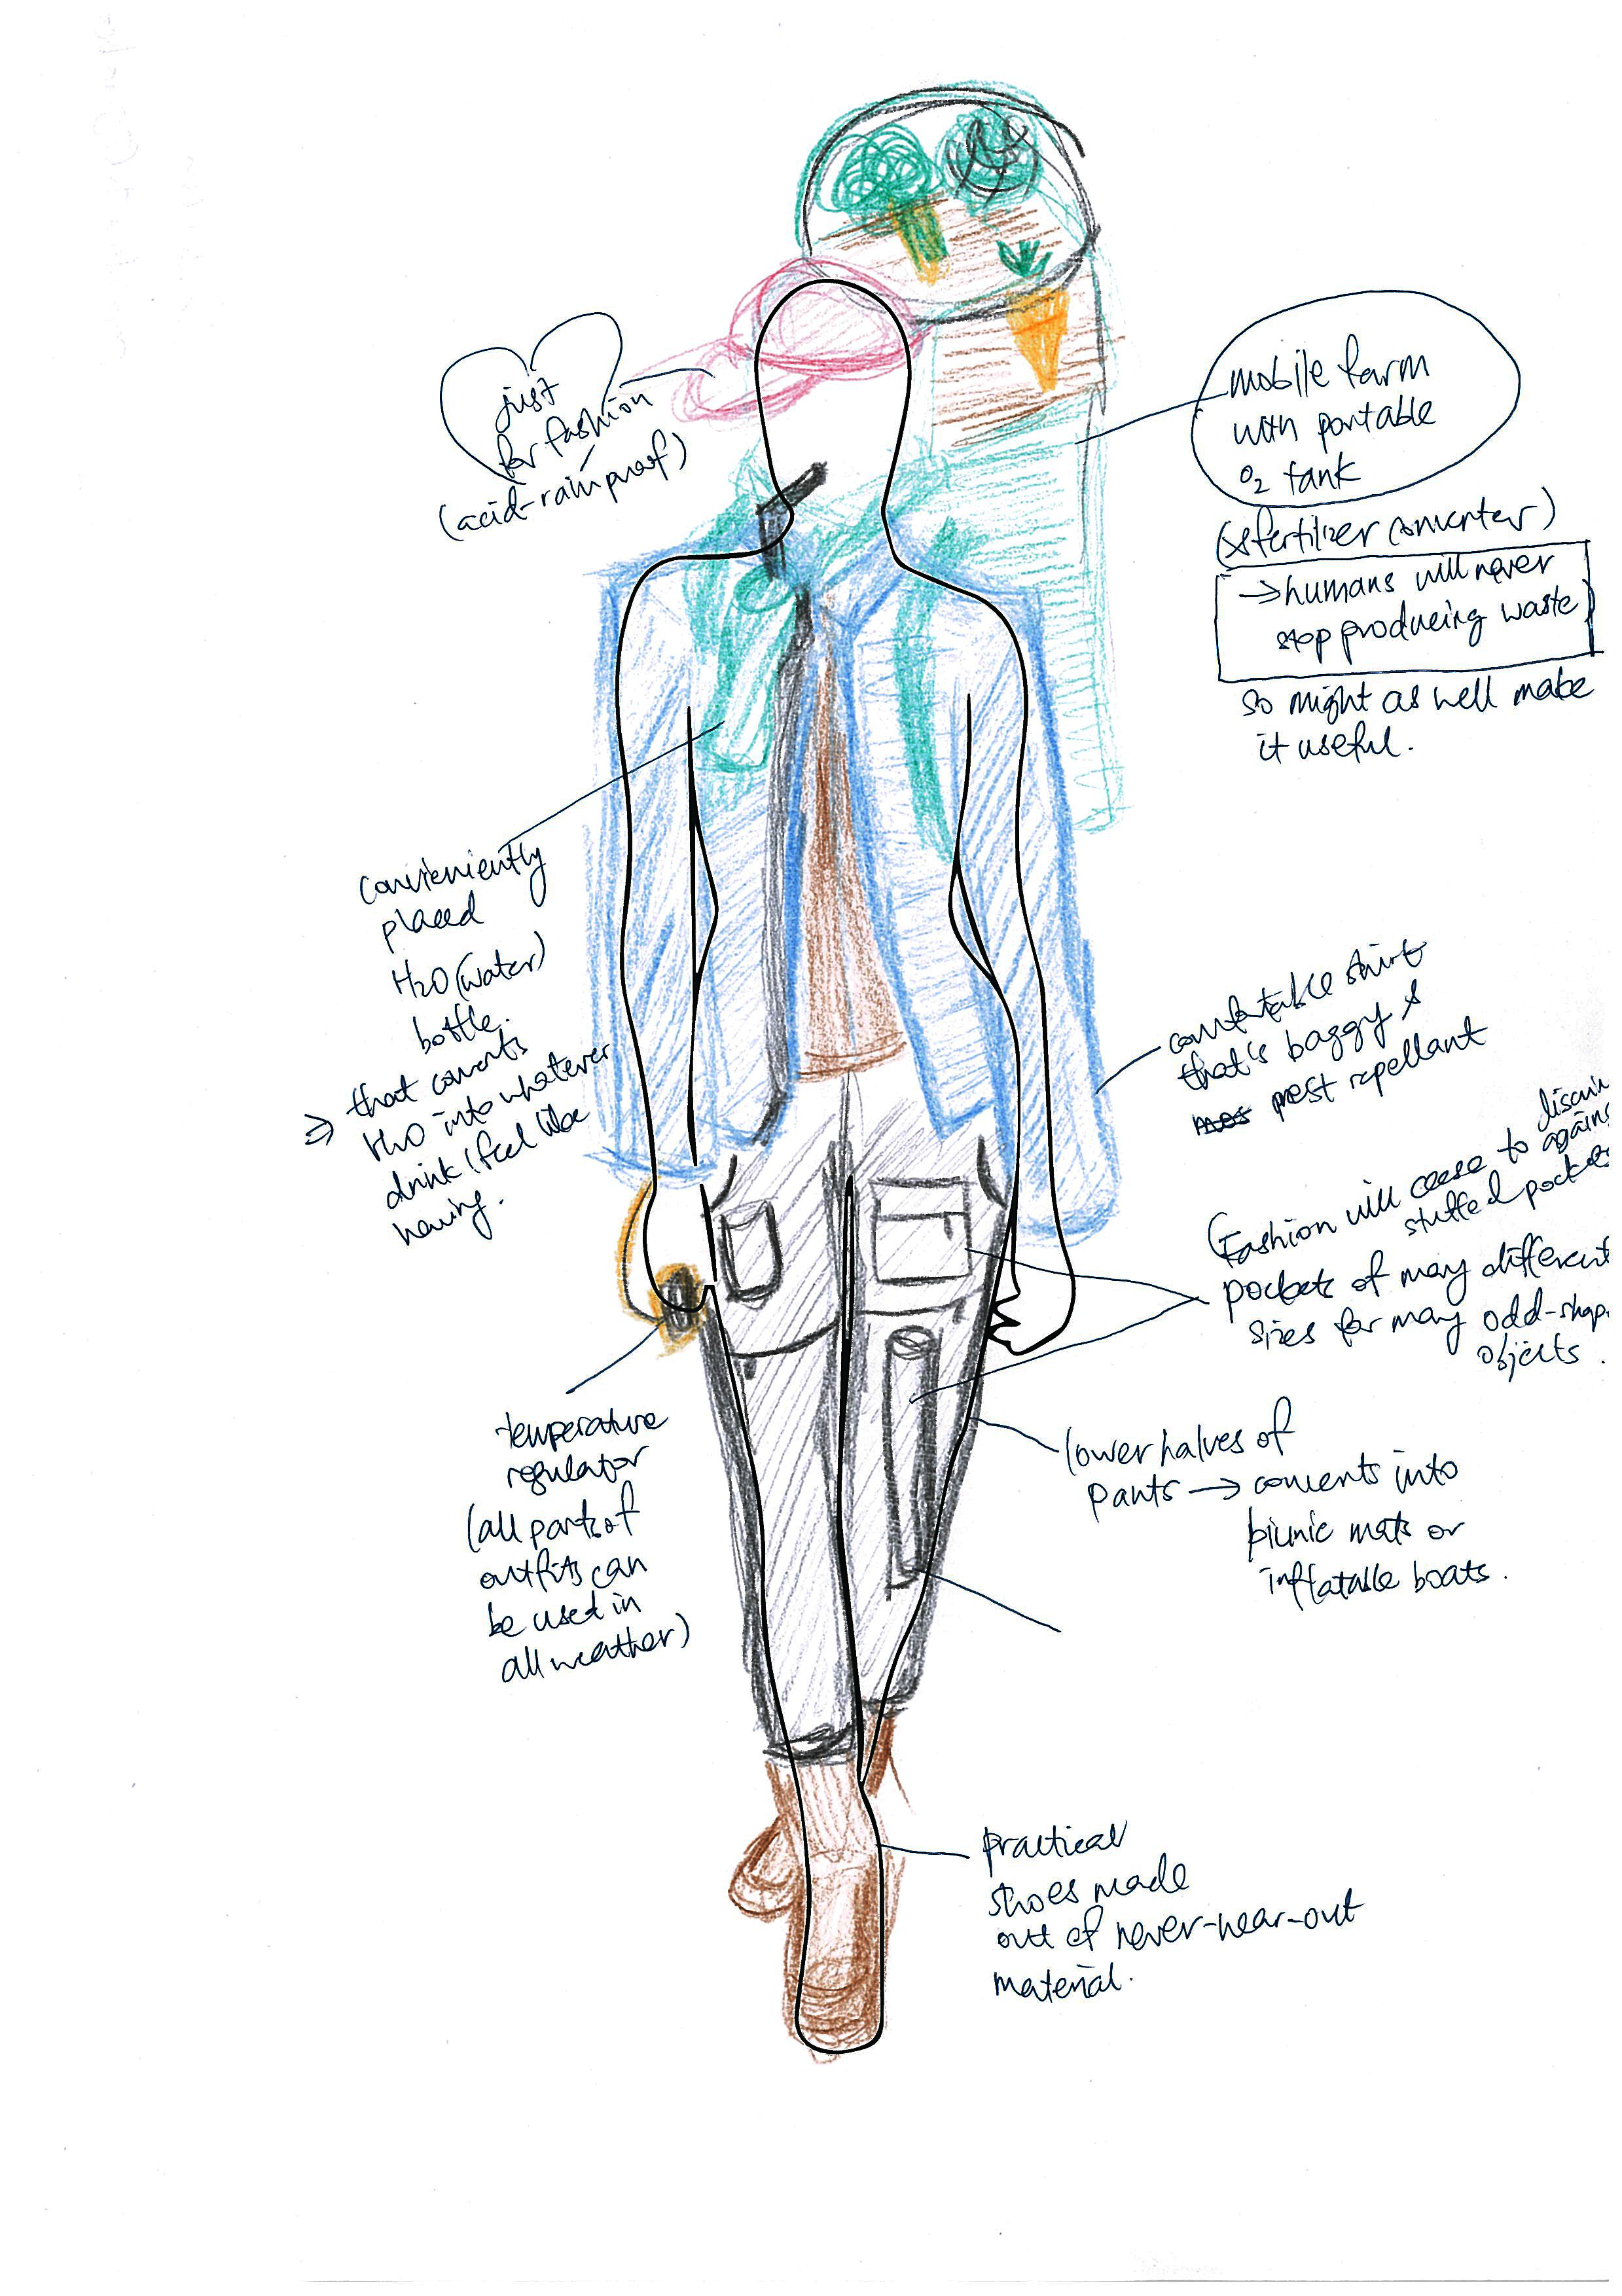 just
for fashion
(acid-rainproof)
mobile farm
with portable
O2 tank
(& fertilizer converter)
→ humans will never
stop producing waste
so might as well make
it useful.
conveniently
placed
H2O (water)
bottle.
⇒ that converts
H2O into whatever
drink (feel like
having.
comfortable shirt
that's baggy &
pest repellant
(Fashion will cease to
against
stuffed pockets
pockets of many different
sizes for many odd-shap
objects.
temperature
regulator
(all parts of
outfits can
be used in
all weather)
lower halves of
pants → converts into
picnic mats or
inflatable boats.
practical
shoes made
out of never-wear-out
material.